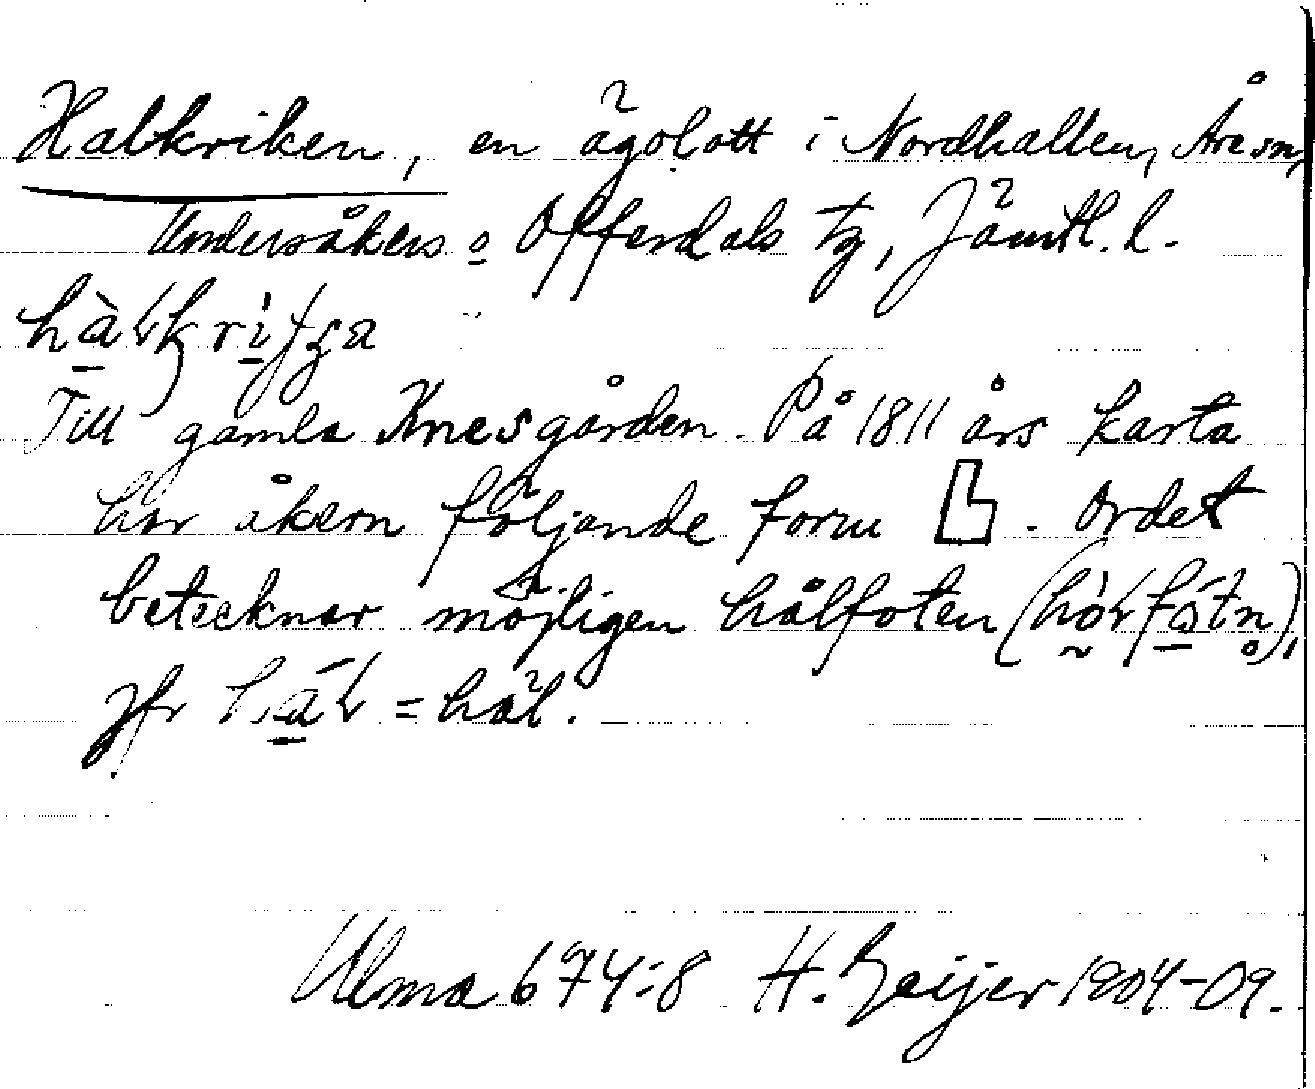 Halkriken, en ägolott i Nordhallen, Åre sn,
Undersåkers o Offerdals tg, Jämtl. l.
Till gamla Knesgården. På 1811 års karta
har åkern följande form . Ordet
betecknar möjligen hålfoten
jfr = häl.
Ulma 674:8 H. Geijer 1904-09.